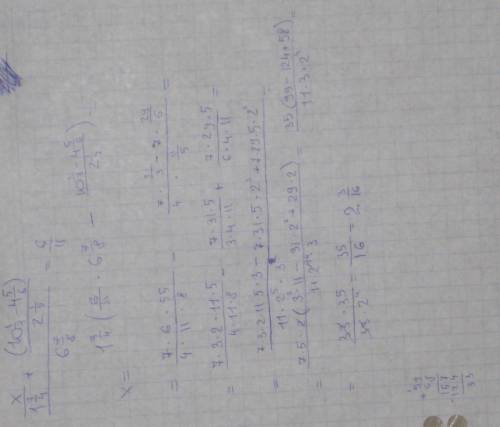 x/(1 3/4) + (10 1/3 - 4 5/6)/(2 1/5)
/ 6 7/8 = 6/11
x = 1 3/4 (6/11 · 6 7/8 - (10 1/3 - 4 5/6)/(2 1/5)) =
= (7·6·55)/(4·11·8) - (7 · 31/3 - 7 · 29/6)/(4 · 11/5) =
= (7·3·2·11·5)/(4·11·8) - (7·31·5)/(3·4·11) + (7·29·5)/(6·4·11) =
= (7·3·2·11·5·3 - 7·31·5·2³ + 7·29·5·2²)/(11·2⁵·3) =
= (7·5·2(3²·11 - 31·2² + 29·2))/(11·2⁵·3) = (35(99-124+58))/(11·3·2⁴) =
= (33·35)/(33·2⁴) = 35/16 = 2 3/16
+ 99
58
157
- 124
33